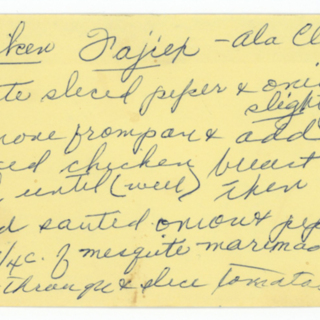 ken Fajiep - ala Cl
te sliced peper & oni
slight
move from pan & add
ced chicken breast
until (well) then
d sauted onion & pep
1/4 c. of mesquite marinad
through & slice tomato